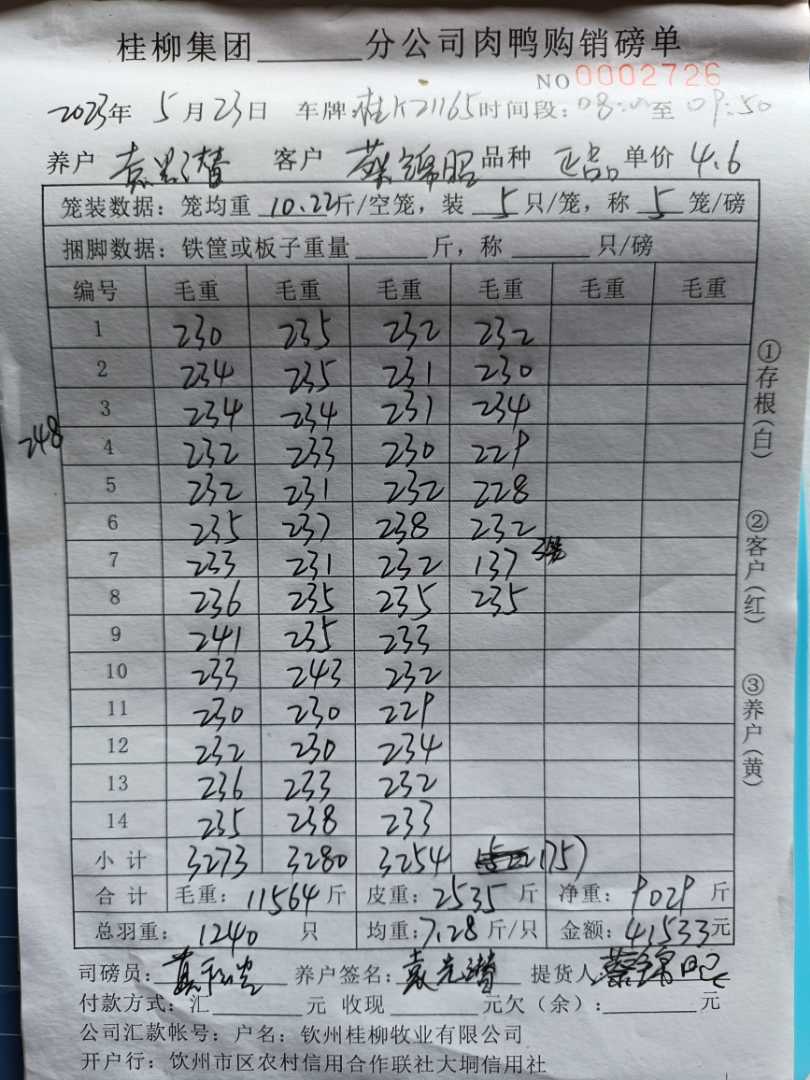 桂柳集团______分公司肉鸭购销磅单
NO 0002726
2023年 5月23日 车牌 桂K21165 时间段：08:00至09:50
养户 袁光潜 客户 蔡锦昭 品种 正品 单价 4.6
笼装数据：笼均重 10.22斤/空笼，装 5 只/笼，称 5 笼/磅
捆脚数据：铁筐或板子重量______斤，称______只/磅
编号 毛重 毛重 毛重 毛重 毛重 毛重
1 230 235 232 232
2 234 235 231 230
3 234 234 231 234
248
4 232 233 230 229
5 232 231 232 228
6 235 237 238 232
7 233 231 232 137 3笼
8 236 235 235 235
9 241 235 233
10 233 243 232
11 230 230 229
12 232 230 234
13 236 233 232
14 235 238 233
小计 3273 3280 3254 1757
合计 毛重：11564斤 皮重：2535斤 净重：9029斤
总羽重：1240 只 均重：7.28斤/只 金额：41533元
司磅员： 养户签名：袁光潜 提货人 蔡锦昭
付款方式：汇______元 收现______元欠（余）：______元
公司汇款帐号：户名：钦州桂柳牧业有限公司
开户行：饮州市区农村信用合作联社大垌信用社
①存根（白）
②客户（红）
③养户（黄）